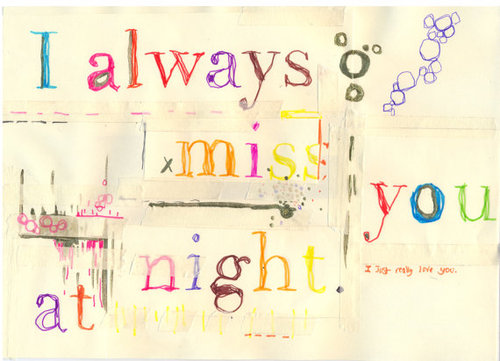 I always
x miss
you
I just really love you.
at night